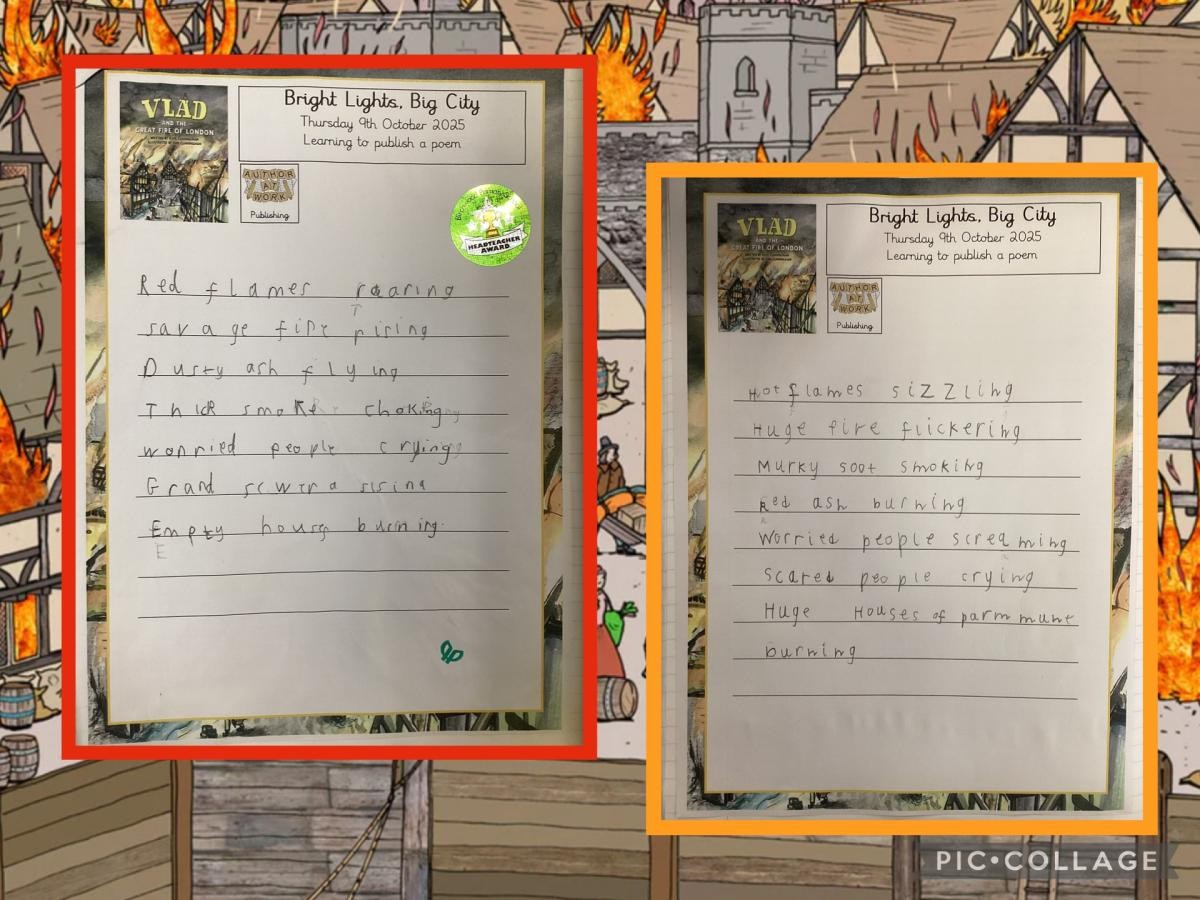 VLAD
AND THE
GREAT FIRE OF LONDON
Bright Lights, Big City
Thursday 9th October 2025
Learning to publish a poem
AUTHOR
AT
WORK
Publishing
HEADTEACHER
AWARD
Red flames roaring
savage fire rising
Dusty ash flying
Thick smoke choking
worried people crying
Grand
Empty house burning.
E
VLAD
AND THE
GREAT FIRE OF LONDON
Bright Lights, Big City
Thursday 9th October 2025
Learning to publish a poem
AUTHOR
AT
WORK
Publishing
Hot flames siZZling
Huge fire flickering
Murky soot smoking
Red ash burning
Worried people screaming
Scared people crying
Huge Houses of parmmunt
burning
PIC•COLLAGE